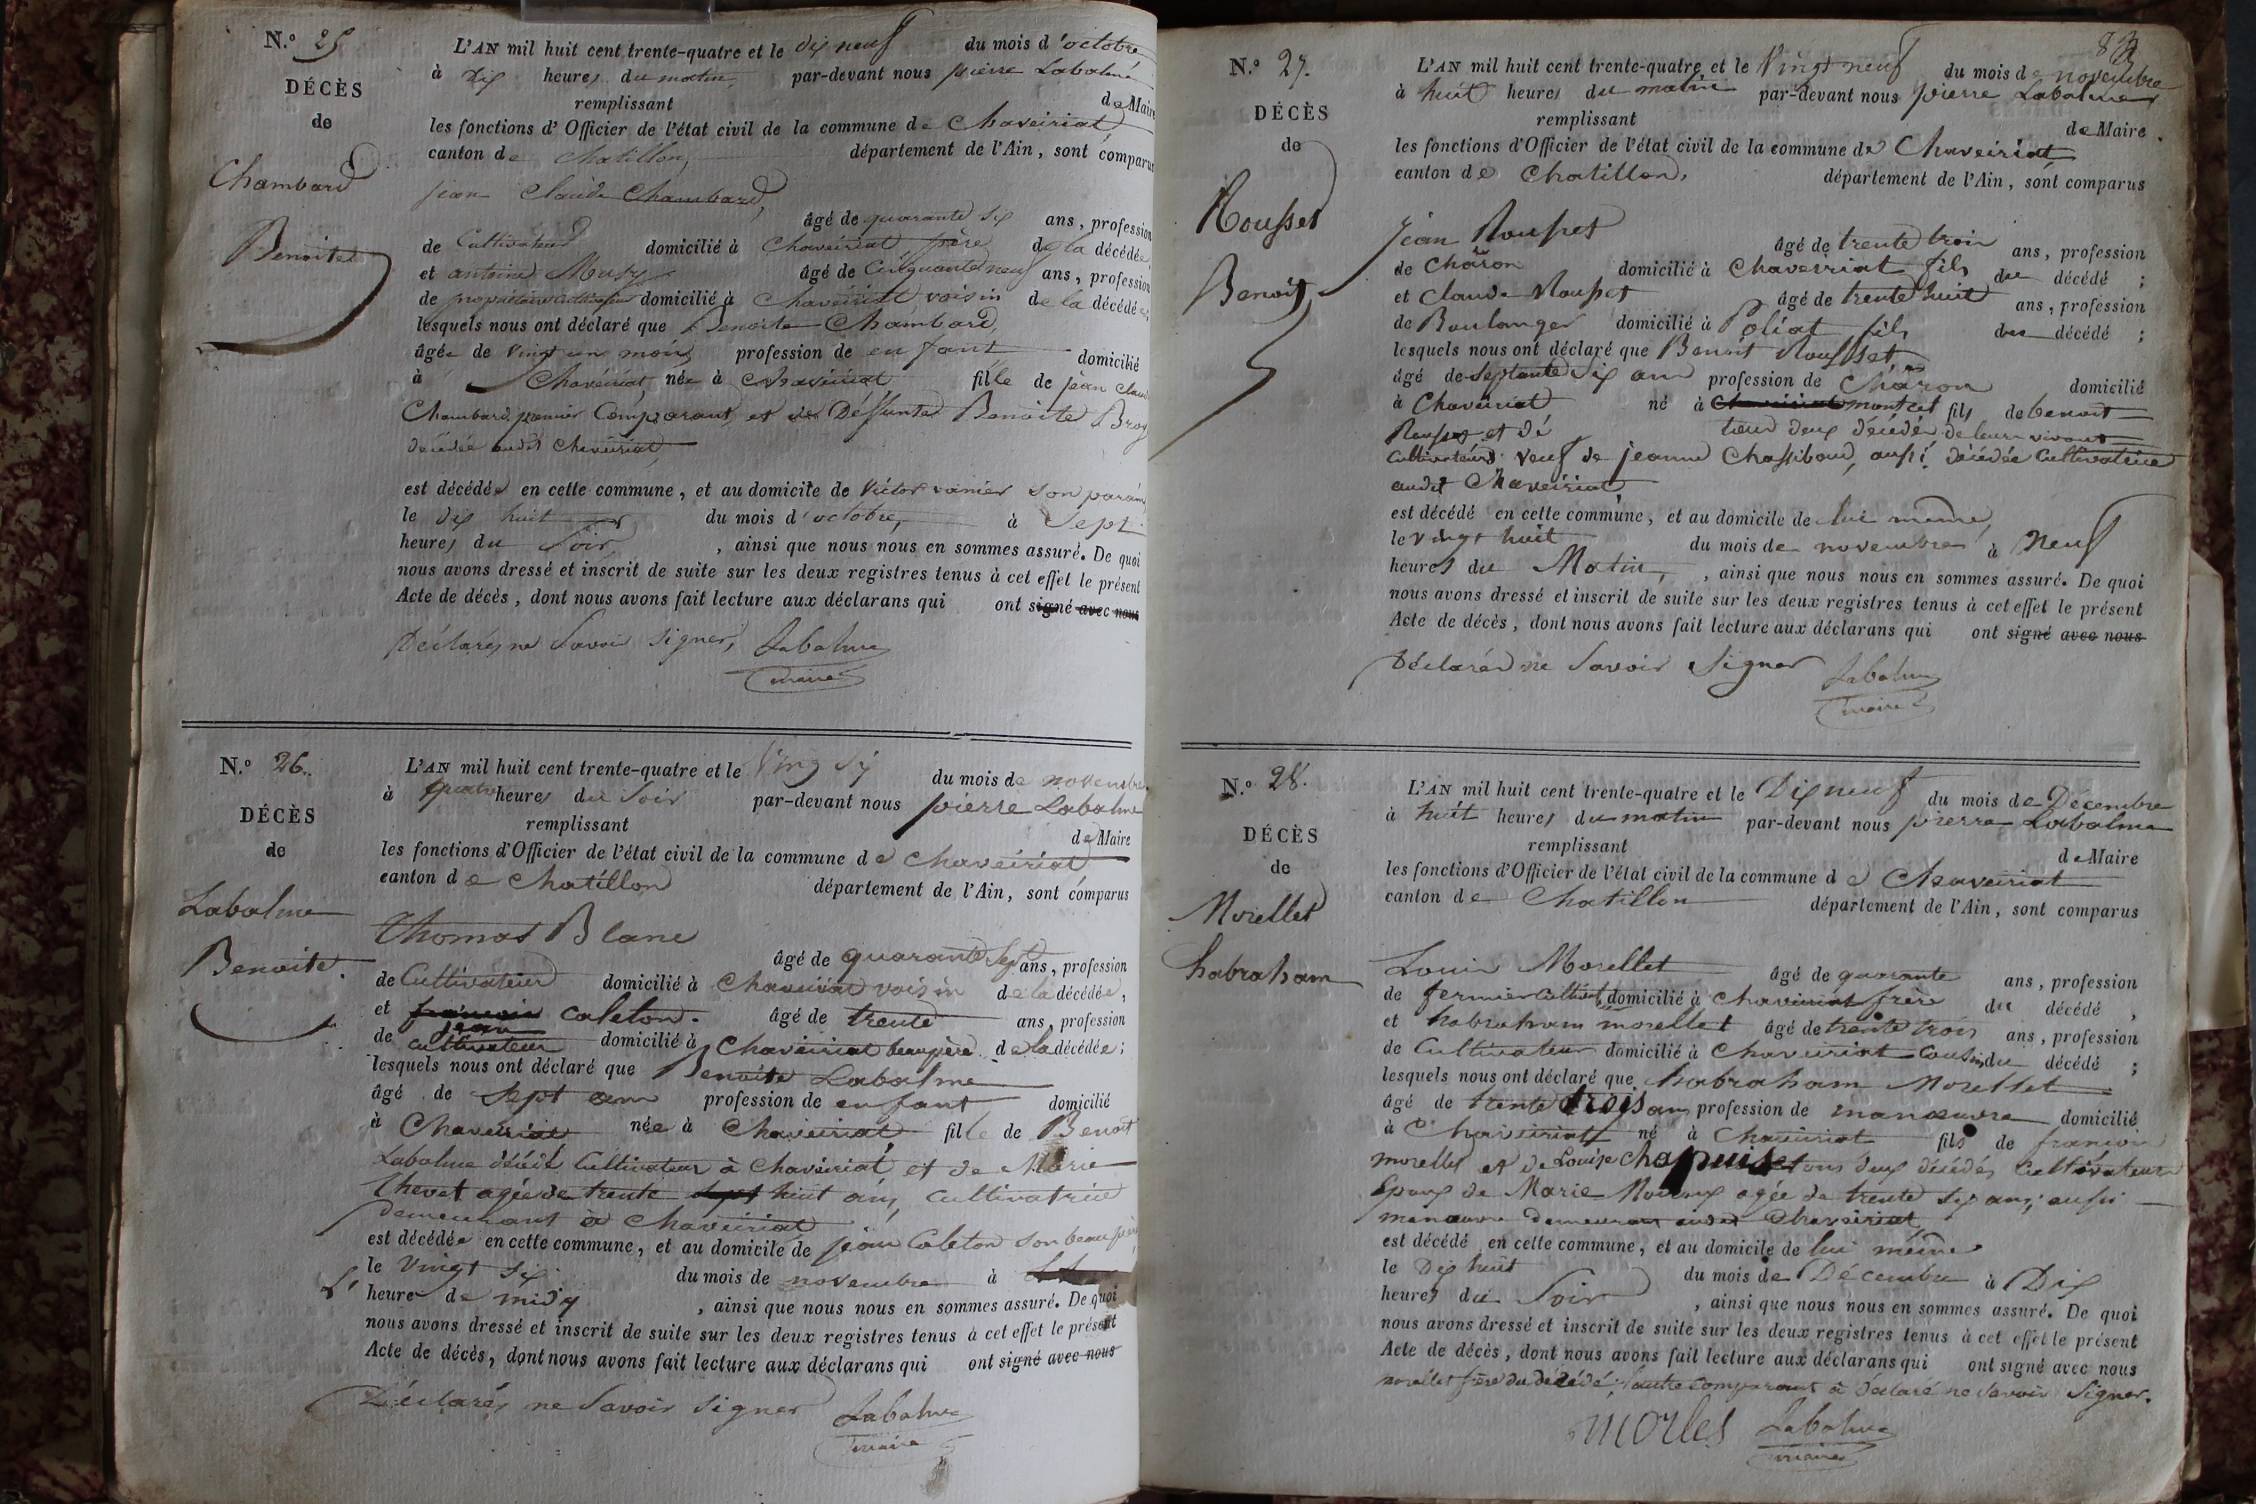 N.o 25
DÉCÈS
de
Chambard
Benoite
L'AN mil huit cent trente-quatre et le dix neuf du mois d'octobre
à Dix heures du matin par-devant nous pierre Labalme
remplissant de Maire
les fonctions d'Officier de l'état civil de la commune de Chaveiriat
canton de Chatillon, département de l'Ain, sont comparus
jean Claude Chambard,
âgé de quarante six ans, profession
de Cultivateur domicilié à Chaveiriat père de la décédée
et antoine Musy âgé de Cinquante neuf ans, profession
de propriétaire cultivateur domicilié à Chaveiriat voisin de la décédée;
lesquels nous ont déclaré que Benoite Chambard,
âgée de vingt un mois profession de enfant domicilié
à Chaveiriat, née à Chaveiriat fille de jean Claude
Chambard, premier Comparant, et de Deffunte Benoite Broy
décédée audit Chaveiriat
est décédée en cette commune, et au domicile de Victor vanier son parain
le dix huit du mois d'octobre, à Sept
heures du Soir, , ainsi que nous nous en sommes assuré. De quoi
nous avons dressé et inscrit de suite sur les deux registres tenus à cet effet le présent
Acte de décès, dont nous avons fait lecture aux déclarans qui ont signé avec nous
Déclarés ne Savoir signer, Labalme
maire
N.o 26.
DÉCÈS
de
Labalme
Benoite.
L'AN mil huit cent trente-quatre et le Ving Six du mois de novembre
à quatre heures du Soir par-devant nous pierre Labalme
remplissant de Maire
les fonctions d'Officier de l'état civil de la commune de Chaveiriat
canton de Chatillon département de l'Ain, sont comparus
Thomas Blanc
âgé de quarante Sept ans, profession
de Cultivateur domicilié à Chaveiriat voisin de la décédée,
et françois jean Caleton. âgé de trente ans, profession
de cultivateur domicilié à Chaveiriat beaupère de la décédée;
lesquels nous ont déclaré que Benoite Labalme
âgé de Sept ans profession de enfant domicilié
à Chaveiriat née à Chaveiriat fille de Benoit
Labalme décédé Cultivateur à Chaveiriat, et de Marie
Thevet agée de trente sept huit ans, cultivatrice
demeurant à Chaveiriat
est décédée en cette commune, et au domicile de jean Caleton son beau père
le Vingt six du mois de novembre à
L'heure de midy , ainsi que nous nous en sommes assuré. De quoi
nous avons dressé et inscrit de suite sur les deux registres tenus à cet effet le présent
Acte de décès, dont nous avons fait lecture aux déclarans qui ont signé avec nous
Déclarés ne Savoir signer Labalme
maire
N.o 27.
DÉCÈS
de
Rousset
Benoit
L'AN mil huit cent trente-quatre et le Vingt neuf du mois de novembre
à huit heures du matin par-devant nous pierre Labalme
remplissant de Maire.
les fonctions d'Officier de l'état civil de la commune de Chaveiriat
canton de Chatillon, département de l'Ain, sont comparus
Jean Rousset
âgé de trente trois ans, profession
de Charon domicilié à Chaveiriat fils du décédé;
et Claude Rousset âgé de trente huit ans, profession
de Boulanger domicilié à Poliat fils du décédé;
lesquels nous ont déclaré que Benoit Rousset
âgé de Septante Six ans profession de Charon domicilié
à Chaveiriat né à Chaveiriat montcet fils de benoit
Rousset et de tous deux décédés de leurs vivants
Cultivateurs veuf de jeanne Chassiboud, aussi décédée Cultivatrice
audit Chaveiriat
est décédé en cette commune, et au domicile de lui même,
le vingt huit du mois de novembre à Neuf
heures du Matin, , ainsi que nous nous en sommes assuré. De quoi
nous avons dressé et inscrit de suite sur les deux registres tenus à cet effet le présent
Acte de décès, dont nous avons fait lecture aux déclarans qui ont signé avec nous
Déclarés ne Savoir Signer Labalme
maire
N.o 28.
DÉCÈS
de
Morellet
habraham
L'AN mil huit cent trente-quatre et le Dix neuf du mois de Décembre
à huit heures du matin par-devant nous pierre Labalme
remplissant de Maire
les fonctions d'Officier de l'état civil de la commune de Chaveiriat
canton de Chatillon département de l'Ain, sont comparus
Louis Morellet âgé de quarante ans, profession
de fermier cultivat. domicilié à Chaveiriat frère du décédé,
et habraham morellet âgé de trente trois ans, profession
de Cultivateur domicilié à Chaveiriat Cousin du décédé;
lesquels nous ont déclaré que habraham Morellet
âgé de trente trois ans profession de manœuvre domicilié
à Chaveiriat né à Chaveiriat fils de françois
morellet et de Louise Chapuis tous deux décédés Cultivateurs
Epoux de Marie agée de trente six ans, aussi
manœuvre demeurant audit Chaveiriat,
est décédé en cette commune, et au domicile de lui même
le Dix huit du mois de Décembre à Dix
heures du Soir , ainsi que nous nous en sommes assuré. De quoi
nous avons dressé et inscrit de suite sur les deux registres tenus à cet effet le présent
Acte de décès, dont nous avons fait lecture aux déclarans qui ont signé avec nous
morellet frère du décédé, l'autre comparant à déclaré ne Savoir Signer.
morles Labalme
maire